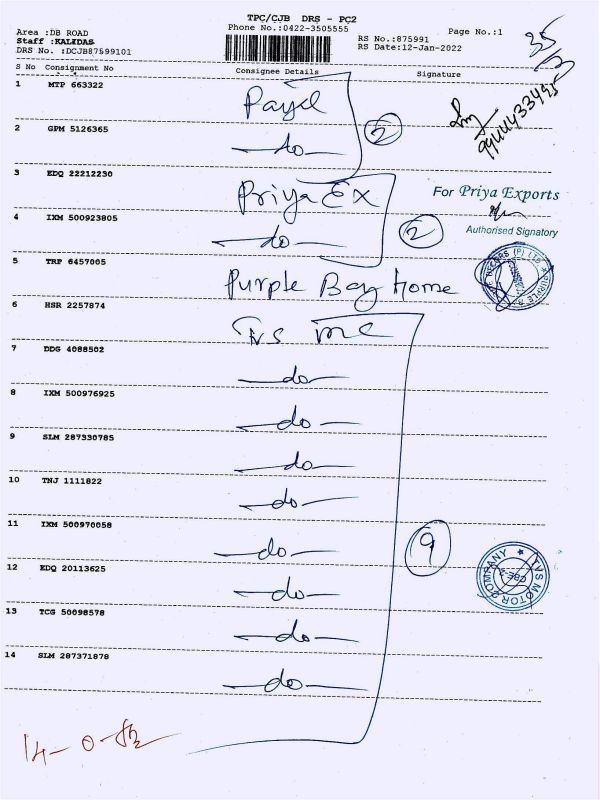 TPC/CJB DRS - PC2
Area :DB ROAD
Phone No.:0422-3505555
Page No.:1
Staff :KALIDAS
RS No.:875991
DRS No. :DCJB87599101
RS Date:12-Jan-2022
35
S No Consignment No Consignee Details Signature
1 MTP 663322
9944433495
2 GPM 5126365 -do-
2
3 EDQ 22212230 Priya EX
For Priya Exports
4 IXM 500923805 -do-
2
Authorised Signatory
5 TRP 6457005 Purple Bay home
6 HSR 2257874 Tvs mc
7 DDG 4088502 -do-
8 IXM 500976925 -do-
9 SLM 287330785 -do-
10 TNJ 1111822 -do-
11 IXM 500970058 -do-
9
12 EDQ 20113625 -do-
TVS MOTOR COMPANY
CBE-2
13 TCG 50098578 -do-
14 SLM 287371878 -do-